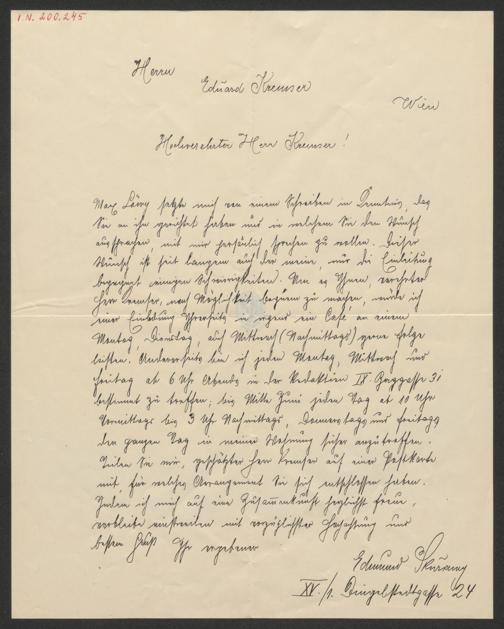 I.N. 200.245
Herrn
Eduard Kremser
Wien
Hochverehrter Herr Kremser!
Max Löwy setzte mich von einem Schreiben in Kenntnis, das
Sie an ihn gerichtet haben und in welchem Sie den Wunsch
aussprachen, mit mir persönlich sprechen zu wollen. Dieser
Wunsch ist seit langem auch der meine, nur die Einleitung
begegnet einigen Schwierigkeiten. Um es Ihnen, verehrter
Herr Kremser, nach Möglichkeit bequem zu machen, würde ich
einer Einladung Ihrerseits in irgend ein Café an einem
Montag, Dienstag, auch Mittwoch (Nachmittags) gerne Folge
leisten. Andererseits bin ich jeden Montag, Mittwoch und
Freitag ab 6 Uhr Abends in der Redaktion IX. 31
bestimmt zu treffen; bis Mitte Juni jeden Tag ab 10 Uhr
Vormittags bis 3 Uhr Nachmittags, Donnerstags und Freitags
den ganzen Tag in meiner Wohnung sicher anzutreffen.
Teilen Sie mir, geschätzter Herr Kremser auf einer Postkarte
mit für welches Arrangement Sie sich entschlossen haben.
Indem ich mich auf eine Zusammenkunft herzlichst freue,
verbleibe einstweilen mit vorzüglichster Hochachtung und
bestem Gruß Ihr ergebener
Edmund Skurawy
XV./1. Dingelstedtgasse 24